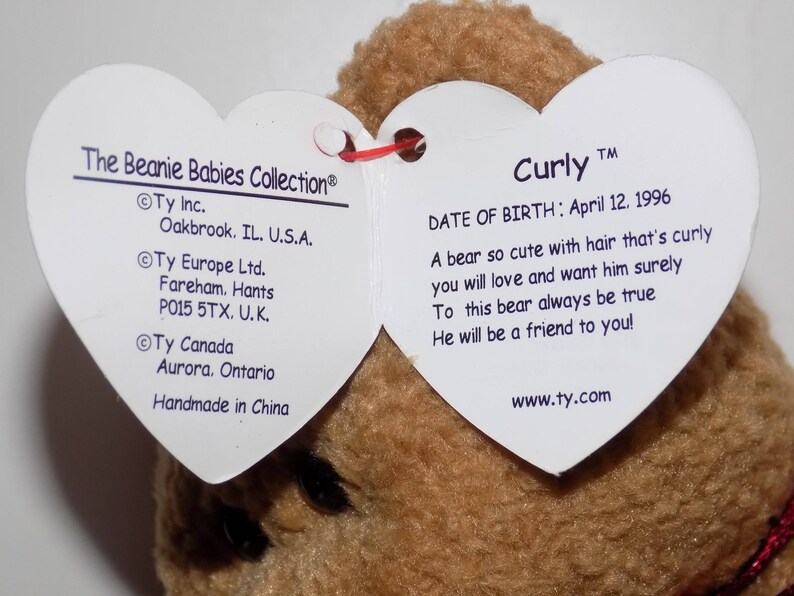 The Beanie Babies Collection®
©Ty Inc.
Oakbrook, IL. U.S.A.
©Ty Europe Ltd.
Fareham, Hants
PO15 5TX, U.K.
©Ty Canada
Aurora, Ontario
Handmade in China
Curly ™
DATE OF BIRTH : April 12, 1996
A bear so cute with hair that's curly
you will love and want him surely
To this bear always be true
He will be a friend to you!
www.ty.com